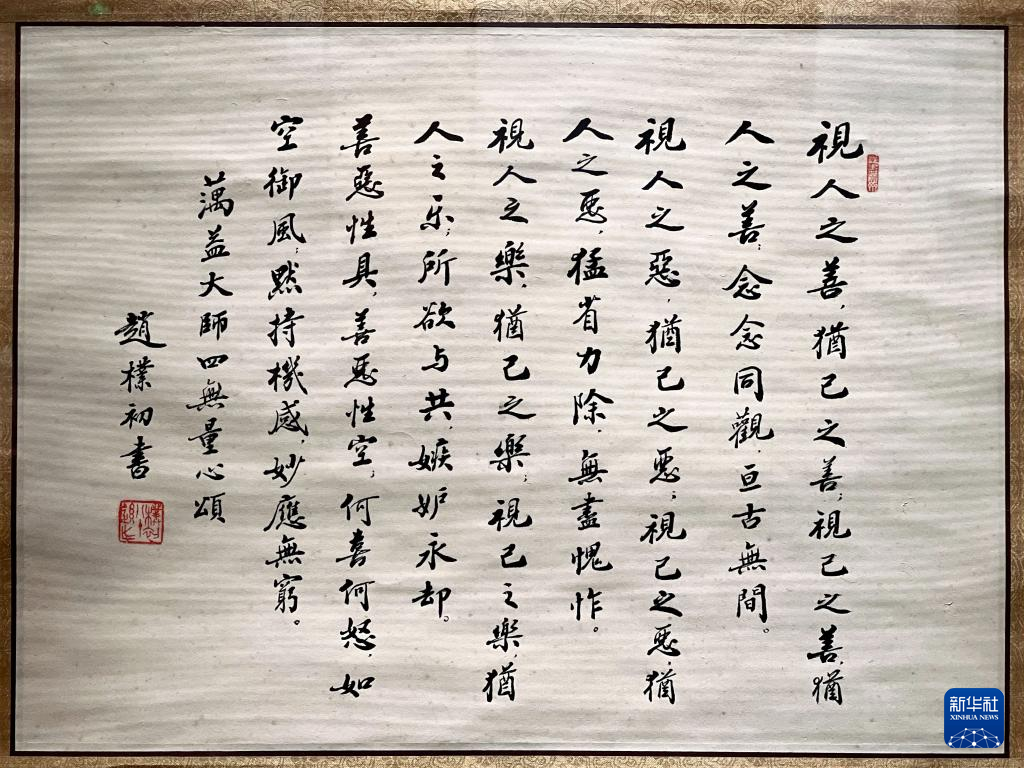 視人之善，猶己之善；視己之善，猶
人之善；念念同觀，亘古無間。
視人之惡，猶己之惡；視己之惡，猶
人之惡，猛省力除，無盡愧怍。
視人之樂，猶己之樂；視己之樂，猶
人之乐；所欲与共，嫉妒永却。
善惡性具，善惡性空，何喜何怒，如
空御風；默持機感，妙應無窮。
蕅益大師四無量心頌
趙樸初書
新华社
XINHUA NEWS